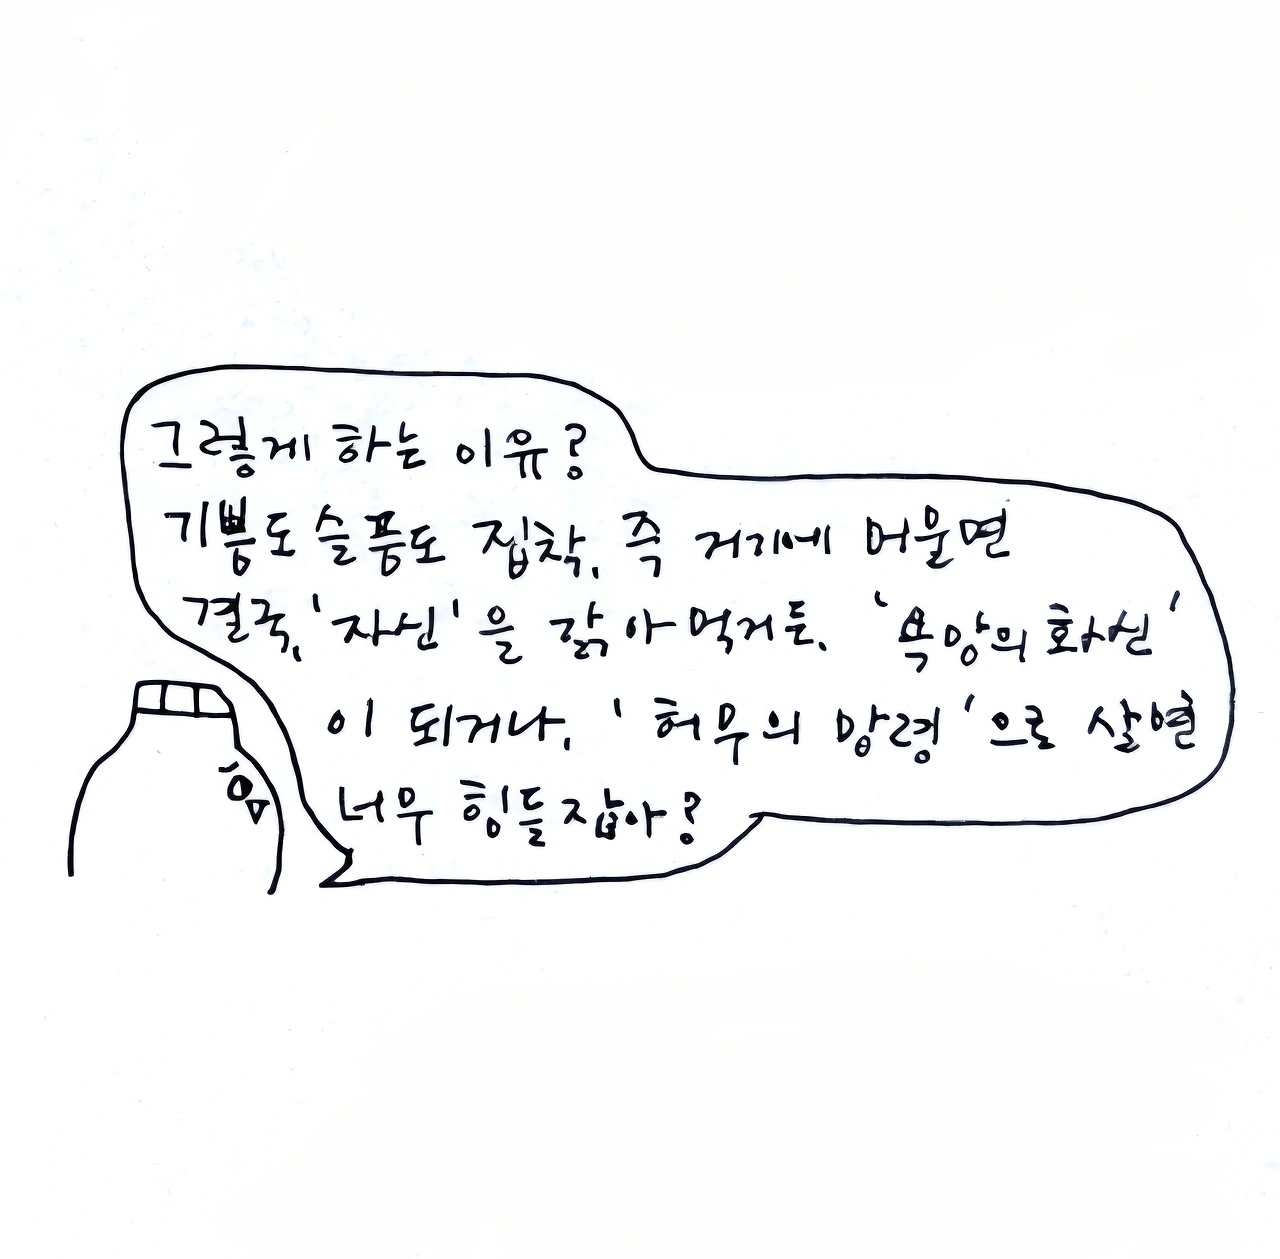 그렇게 하는 이유?
기쁨도 슬픔도 집착, 즉 거기에 머울면
결국, '자신'을 갉아먹거든. '욕망의 화신'
이 되거나, '허무의 망령'으로 살면
너무 힘들잖아?